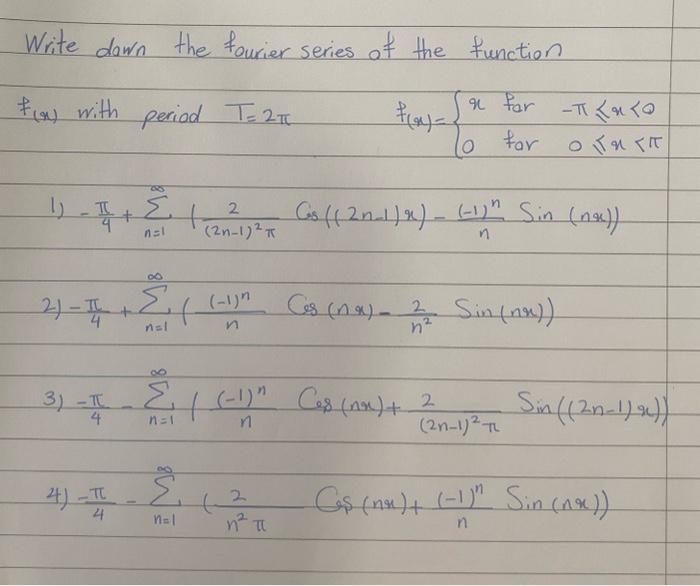 Write down the fourier series of the function
f(x) with period T=2π f(x)= { x for -π ≤ x < 0
0 for 0 ≤ x < π
1) -π/4 + ∞ Σ n=1 ( 2/(2n-1)²π Cos((2n-1)x) - (-1)ⁿ/n Sin (nx))
2) -π/4 + ∞ Σ n=1 ( (-1)ⁿ/n Cos (nx) - 2/n² Sin(nx))
3) -π/4 - ∞ Σ n=1 ( (-1)ⁿ/n Cos (nx) + 2/(2n-1)²π Sin((2n-1)x))
4) -π/4 - ∞ Σ n=1 ( 2/n²π Cos (nx) + (-1)ⁿ/n Sin (nx))